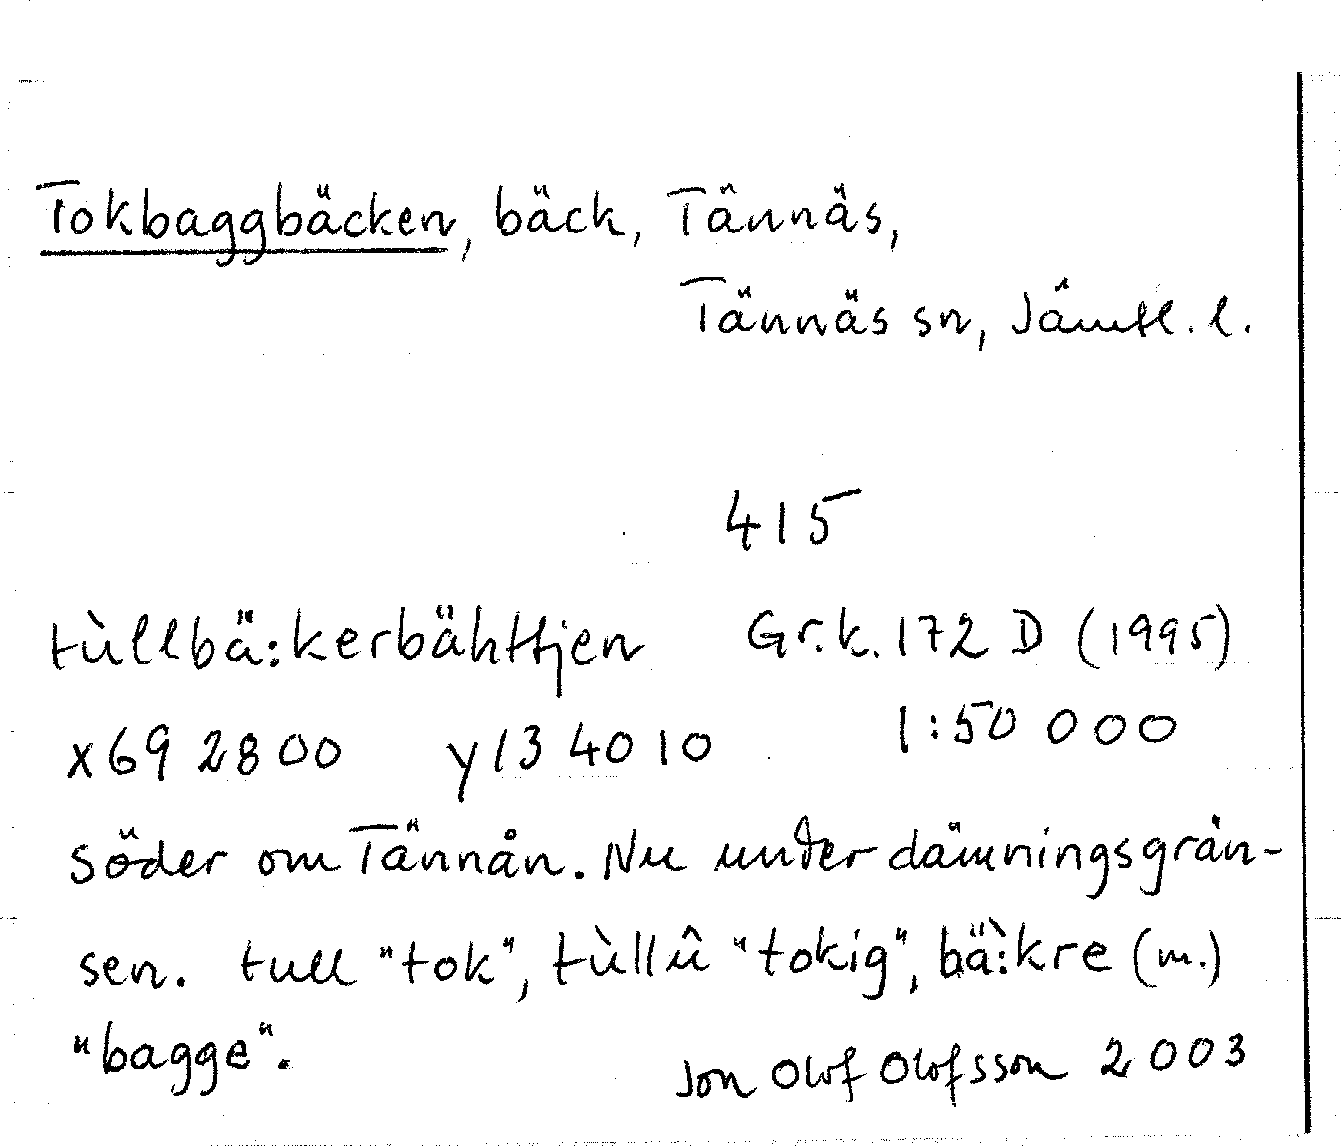 Tokbaggbäcken, bäck, Tännäs,
Tännäs sn, Jämtl. l.
415
tùllbä:kerbähttjen Gr.k. 172 D (1995)
x69 2800 y13 4010 1:50 000
Söder om Tännån. Nu under dämningsgrän-
sen. tull "tok", tùllû "tokig", bä̀:kre (m.)
"bagge".
Jon Olof Olofsson 2003